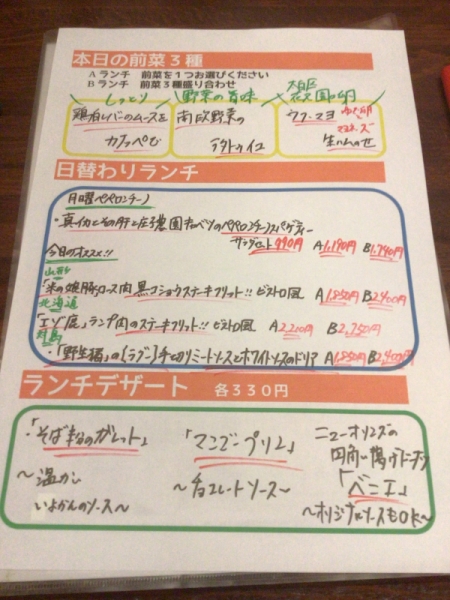 本日の前菜3種
Aランチ 前菜を1つお選びください
Bランチ 前菜3種盛り合わせ
しっとり
鶏白レバームースを
カフェぺ
野菜の旨味
南欧野菜の
ラタトゥイユ
ウフ・マヨ
生ハムのせ
日替わりランチ
月曜ペペロンチーノ
・真イカとその肝と庄子農園キャベツのペペロンチーノスパゲティー
サラダセット990円 A1,190円 B1,740円
今日のオススメ!!
山形
「米の娘豚」ロース肉 黒コショウステーキフリット!! ビストロ風 A1,850円 B2,400円
北海道
「エゾ鹿」ランプ肉のステーキフリット!! ビストロ風 A2,200円 B2,750円
対馬
・「野生猪」の(ラグー)手切りミートソースとホワイトソースのドリア A1,850円 B2,400円
ランチデザート 各330円
「そば粉のガレット」
〜温かい
いよかんのソース〜
「マンゴープリン」
〜チョコレートソース〜
ニューオリンズの
四角い揚げドーナツ
「ベニエ」
〜オリジナルソースもOK〜